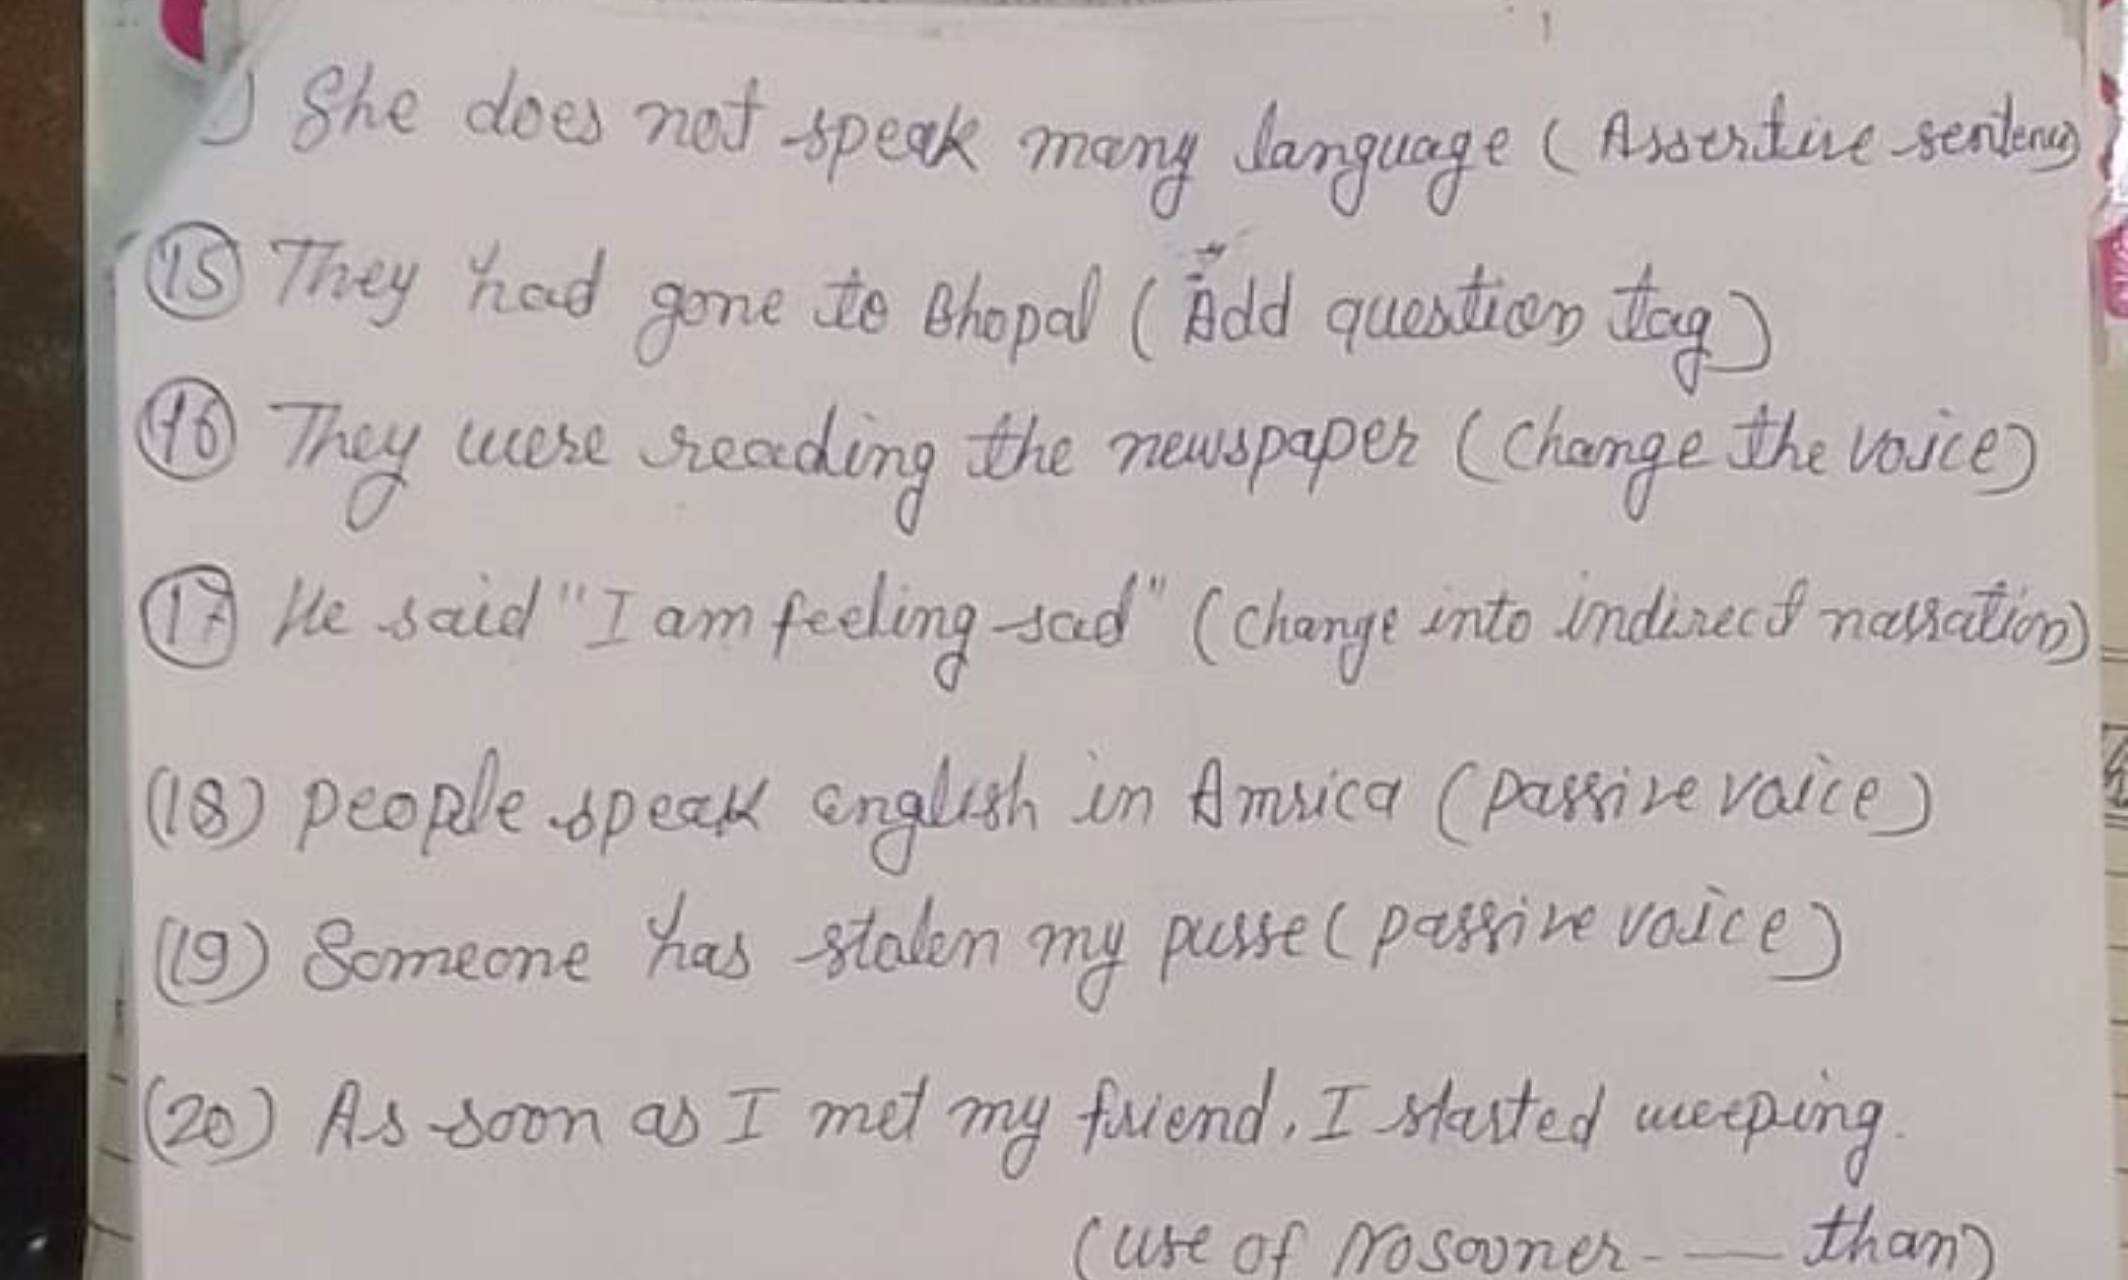 ) She does not speak many language (Assertive sentence)
(15) They had gone to Bhopal (Add question tag)
(16) They were reading the newspaper (Change the voice)
(17) He said "I am feeling sad" (change into indirect narration)
(18) people speak english in Amrica (passive voice)
(19) Someone has stolen my purse (passive voice)
(20) As soon as I met my friend, I started weeping.
(use of No sooner -- — than)